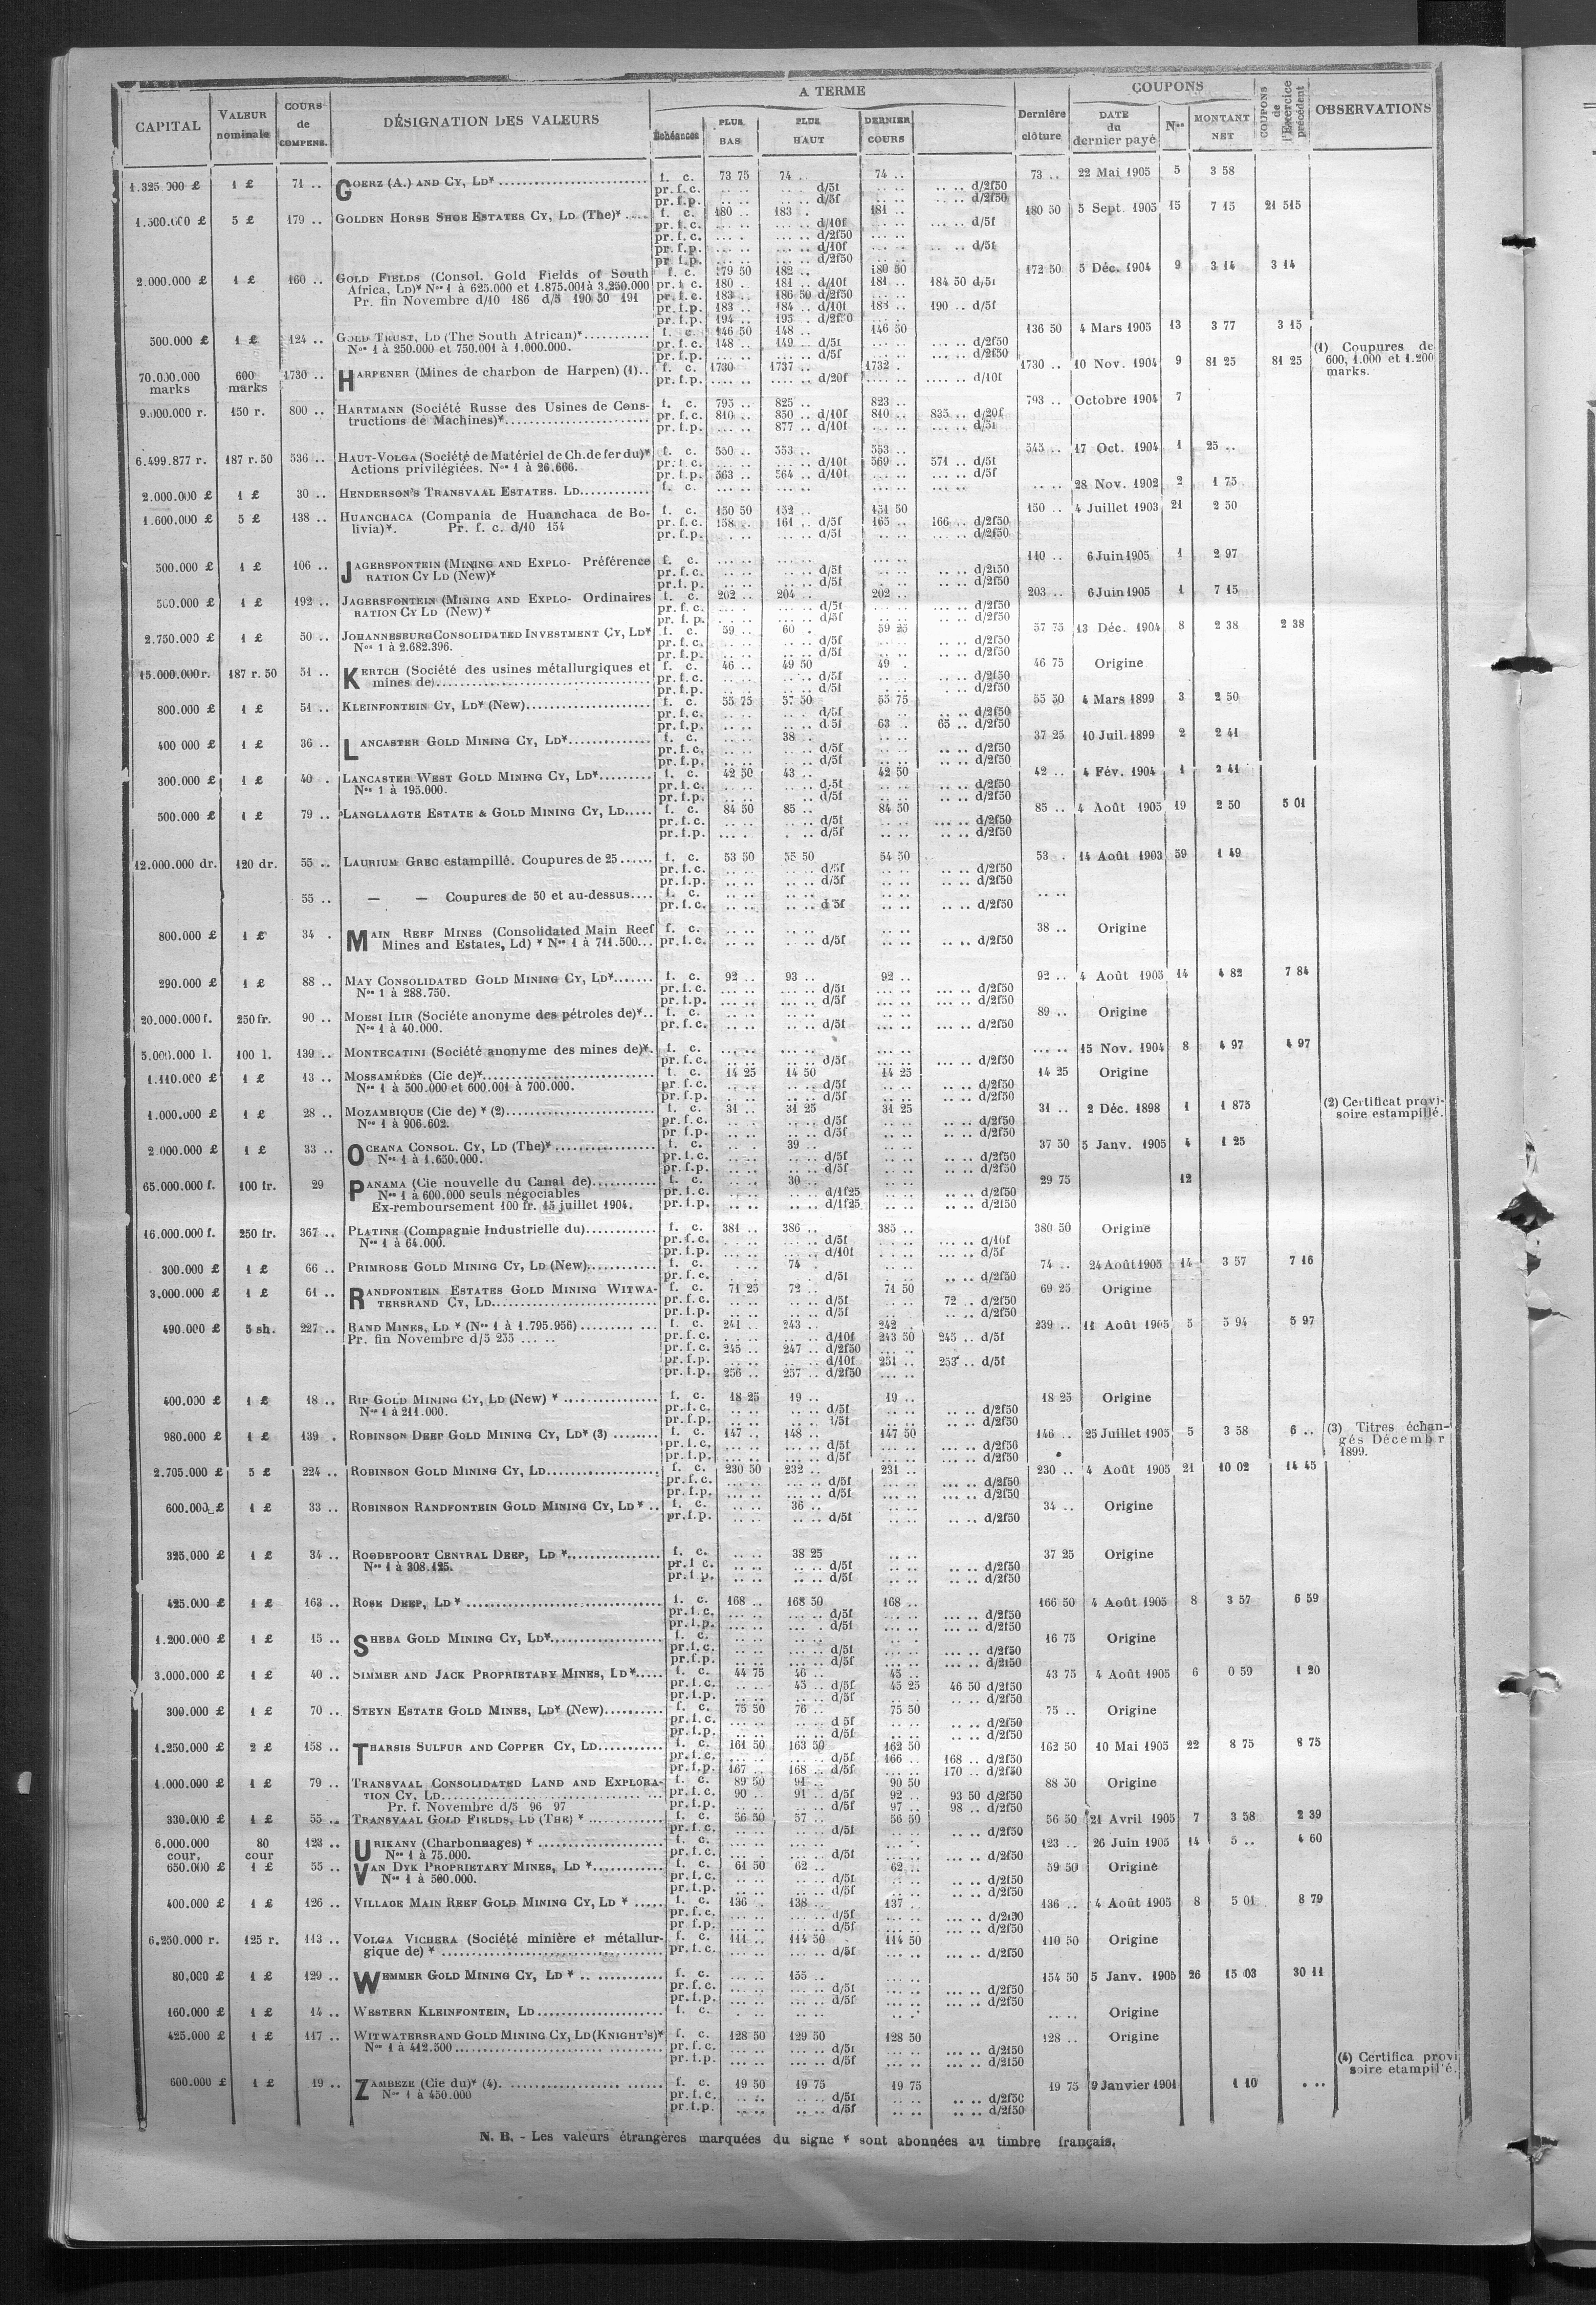 CAPITAL | VALEUR nominale | COURS de COMPENS. | DÉSIGNATION DES VALEURS | A TERME | Dernière clôture | COUPONS | COUPONS de l'Exercice précédent | OBSERVATIONS
Échéances | PLUS BAS | PLUS HAUT | DERNIER COURS | DATE du dernier payé | Nos | MONTANT NET
1.325 000 £ | 1 £ | 71 .. | GOERZ (A.) AND CY, LD* | f. c. | 73 75 | 74 .. | 74 .. | 73 .. | 22 Mai 1905 | 5 | 3 58
pr. f. c. | d/5f | d/2f50
pr. f. p. | d/5f | d/2f50
1.500.000 £ | 5 £ | 179 .. | GOLDEN HORSE SHOE ESTATES CY, LD (The)* | f. c. | 180 .. | 183 . | 181 .. | 180 50 | 5 Sept. 1905 | 15 | 7 15 | 21 515
pr. f. c. | d/10f | d/5f
pr. f. c. | d/2f50
pr. f. p. | d/10f | d/5f
pr. f. p. | d/2f50
2.000.000 £ | 1 £ | 160 .. | GOLD FIELDS (Consol. Gold Fields of South | f. c. | 179 50 | 182 .. | 180 50 | 172 50 | 5 Déc. 1904 | 9 | 3 14 | 3 14
Africa, LD)* Nos 1 à 625.000 et 1.875.001 à 3.250.000 | pr. f. c. | 180 .. | 181 .. d/10f | 181 .. | 184 50 d/5f
Pr. fin Novembre d/10 186 d/5 190 50 191 | pr. f. c. | 183 .. | 186 50 d/2f50
pr. f. p. | 183 .. | 184 .. d/10f | 183 .. | 190 .. d/5f
pr. f. p. | 194 .. | 195 .. d/2f50
500.000 £ | 1 £ | 124 .. | GOLD TRUST, LD (The South African)* | f. c. | 146 50 | 148 .. | 146 50 | 136 50 | 4 Mars 1905 | 13 | 3 77 | 3 15
Nos 1 à 250.000 et 750.001 à 1.000.000. | pr. f. c. | 148 .. | 149 .. d/5f | d/2f50
pr. f. p. | d/5f | d/2f50
(1) Coupures de 600, 1.000 et 1.200 marks.
70.000.000 marks | 600 marks | 1730 .. | HARPENER (Mines de charbon de Harpen) (1).. | f. c. | 1730 | 1737 .. | 1732 . | 1730 .. | 10 Nov. 1904 | 9 | 81 25 | 81 25
pr. f. p. | d/20f | d/10f
9.000.000 r. | 150 r. | 800 .. | HARTMANN (Société Russe des Usines de Cons- | f. c. | 795 .. | 825 .. | 823 .. | 793 .. | Octobre 1904 | 7
tructions de Machines)* | pr. f. c. | 810 .. | 850 .. d/10f | 810 .. | 835 .. d/20f
pr. f. p. | 877 .. d/10f | d/5f
6.499.877 r. | 187 r. 50 | 536 .. | HAUT-VOLGA (Société de Matériel de Ch. de fer du)* | f. c. | 550 .. | 553 .. | 553 .. | 545 .. | 17 Oct. 1904 | 1 | 25 ..
Actions privilégiées. Nos 1 à 26.666. | pr. f. c. | d/10f | 569 .. | 571 .. d/5f
pr. f. p. | 563 .. | 564 .. d/10f | d/5f
2.000.000 £ | 1 £ | 30 .. | HENDERSON'S TRANSVAAL ESTATES. LD | f. c. | 28 Nov. 1902 | 2 | 1 75
1.600.000 £ | 5 £ | 138 .. | HUANCHACA (Compania de Huanchaca de Bo- | f. c. | 150 50 | 152 .. | 151 50 | 150 .. | 4 Juillet 1903 | 21 | 2 50
livia)*. Pr. f. c. d/10 154 | pr. f. c. | 158 .. | 161 .. d/5f | 165 .. | 166 .. d/2f50
pr. f. p. | d/5f | d/2f50
500.000 £ | 1 £ | 106 .. | JAGERSFONTEIN (MINING AND EXPLO- Préférence | f. c. | 110 .. | 6 Juin 1905 | 1 | 2 97
RATION CY LD (New)* | pr. f. c. | d/5f | d/2f50
pr. f. p. | d/5f | d/2f50
500.000 £ | 1 £ | 192 .. | JAGERSFONTEIN (MINING AND EXPLO- Ordinaires | f. c. | 202 .. | 204 .. | 202 .. | 203 .. | 6 Juin 1905 | 1 | 7 15
RATION CY LD (New)* | pr. f. c. | d/5f | d/2f50
pr. f. p. | d/5f | d/2f50
2.750.000 £ | 1 £ | 50 .. | JOHANNESBURG CONSOLIDATED INVESTMENT CY, LD* | f. c. | 59 .. | 60 . | 59 25 | 57 75 | 13 Déc. 1904 | 8 | 2 38 | 2 38
Nos 1 à 2.682.396. | pr. f. c. | d/5f | d/2f50
pr. f. p. | d/5f | d/2f50
15.000.000 r. | 187 r. 50 | 51 .. | KERTCH (Société des usines métallurgiques et | f. c. | 46 .. | 49 50 | 49 . | 46 75 | Origine
mines de) | pr. f. c. | d/5f | d/2f50
pr. f. p. | d/5f | d/2f50
800.000 £ | 1 £ | 51 .. | KLEINFONTEIN CY, LD* (New) | f. c. | 55 75 | 57 50 | 55 75 | 55 50 | 4 Mars 1899 | 3 | 2 50
pr. f. c. | d/5f | d/2f50
pr. f. p. | d 5f | 63 .. | 65 .. d/2f50
400 000 £ | 1 £ | 36 .. | LANCASTER GOLD MINING CY, LD* | f. c. | 38 .. | 37 25 | 10 Juil. 1899 | 2 | 2 41
pr. f. c. | d/5f | d/2f50
pr. f. p. | d/5f | d/2f50
300.000 £ | 1 £ | 40 . | LANCASTER WEST GOLD MINING CY, LD* | f. c. | 42 50 | 43 .. | 42 50 | 42 .. | 4 Fév. 1904 | 1 | 2 41
Nos 1 à 195.000. | pr. f. c. | d/5f | d/2f50
pr. f. p. | d/5f | d/2f50
500.000 £ | 1 £ | 79 .. | LANGLAAGTE ESTATE & GOLD MINING CY, LD | f. c. | 84 50 | 85 .. | 84 50 | 85 .. | 4 Août 1905 | 19 | 2 50 | 5 01
pr. f. c. | d/5f | d/2f50
pr. f. p. | d/5f | d/2f50
12.000.000 dr. | 120 dr. | 55 .. | LAURIUM GREC estampillé. Coupures de 25 | f. c. | 53 50 | 55 50 | 54 50 | 53 . | 14 Août 1903 | 59 | 1 49
pr. f. c. | d/5f | d/2f50
pr. f. p. | d/5f | d/2f50
55 .. | — — Coupures de 50 et au-dessus | f. c.
pr. f. c. | d 5f | d/2f50
800.000 £ | 1 £ | 34 . | MAIN REEF MINES (Consolidated Main Reef | f. c. | 38 .. | Origine
Mines and Estates, Ld) * Nos 1 à 711.500 | pr. f. c. | d/5f | d/2f50
290.000 £ | 1 £ | 88 .. | MAY CONSOLIDATED GOLD MINING CY, LD* | f. c. | 92 .. | 93 .. | 92 .. | 92 .. | 4 Août 1905 | 14 | 4 82 | 7 84
Nos 1 à 288.750. | pr. f. c. | d/5f | d/2f50
pr. f. p. | d/5f | d/2f50
20.000.000 f. | 250 fr. | 90 .. | MOESI ILIR (Sociéte anonyme des pétroles de)* | f. c. | 89 .. | Origine
Nos 1 à 40.000. | pr. f. c. | d/5f | d/2f50
5.000.000 l. | 100 l. | 139 .. | MONTECATINI (Société anonyme des mines de)*. | f. c. | 15 Nov. 1904 | 8 | 4 97 | 4 97
pr. f. c. | d/5f | d/2f50
1.110.000 £ | 1 £ | 13 .. | MOSSAMÉDÈS (Cie de)* | f. c. | 14 25 | 14 50 | 14 25 | 14 25 | Origine
Nos 1 à 500.000 et 600.001 à 700.000. | pr. f. c. | d/5f | d/2f50
pr. f. p. | d/5f | d/2f50
1.000.000 £ | 1 £ | 28 .. | MOZAMBIQUE (Cie de) * (2) | f. c. | 31 .. | 31 25 | 31 25 | 31 .. | 2 Déc. 1898 | 1 | 1 875 | (2) Certificat provi-
Nos 1 à 906.602. | pr. f. c. | d/5f | d/2f50 | soire estampillé.
pr. f. p. | d/5f | d/2f50
2.000.000 £ | 1 £ | 33 .. | OCEANA CONSOL. CY, LD (The)* | f. c. | 39 .. | 37 50 | 5 Janv. 1905 | 4 | 1 25
Nos 1 à 1.650.000. | pr. f. c. | d/5f | d/2f50
pr. f. p. | d/5f | d/2f50
65.000.000 f. | 100 fr. | 29 | PANAMA (Cie nouvelle du Canal de) | f. c. | 30 .. | 29 75 | 12
Nos 1 à 600.000 seuls négociables | pr. f. c. | d/1f25 | d/2f50
Ex-remboursement 100 fr. 15 juillet 1904. | pr. f. p. | d/1f25 | d/2f50
16.000.000 f. | 250 fr. | 367 .. | PLATINE (Compagnie Industrielle du) | f. c. | 381 .. | 386 .. | 385 .. | 380 50 | Origine
Nos 1 à 64.000. | pr. f. c. | d/5f | d/10f
pr. f. p. | d/10f | d/5f
300.000 £ | 1 £ | 66 .. | PRIMROSE GOLD MINING CY, LD (New) | f. c. | 74 .. | 74 .. | 24 Août 1905 | 14 | 3 57 | 7 16
pr. f. c. | d/5f | d/2f50
3.000.000 £ | 1 £ | 61 .. | RANDFONTEIN ESTATES GOLD MINING WITWA- | f. c. | 71 25 | 72 .. | 71 50 | 69 25 | Origine
TERSRAND CY, LD | pr. f. c. | d/5f | 72 .. d/2f50
pr. f. p. | d/5f | d/2f50
490.000 £ | 5 sh. | 227 .. | RAND MINES, LD * (Nos 1 à 1.795.956) | f. c. | 241 .. | 243 .. | 242 . | 239 .. | 11 Août 1905 | 5 | 5 94 | 5 97
Pr. fin Novembre d/5 255 | pr. f. c. | d/10f | 243 50 | 245 .. d/5f
pr. f. c. | 245 .. | 247 .. d/2f50
pr. f. p. | d/10f | 251 .. | 253 .. d/5f
pr. f. p. | 256 .. | 257 .. d/2f50
400.000 £ | 1 £ | 18 .. | RIP GOLD MINING CY, LD (New) * | f. c. | 18 25 | 19 .. | 19 .. | 18 25 | Origine
Nos 1 à 211.000. | pr. f. c. | d/5f | d/2f50
pr. f. p. | d/2f50
980.000 £ | 1 £ | 139 . | ROBINSON DEEP GOLD MINING CY, LD* (3) | f. c. | 147 .. | 148 .. | 147 50 | 146 .. | 25 Juillet 1905 | 5 | 3 58 | 6 .. | (3) Titres échan-
pr. f. c. | d/5f | d/2f50 | gés Décembr
pr. f. p. | d/5f | d/2f50 | 1899.
2.705.000 £ | 5 £ | 224 .. | ROBINSON GOLD MINING CY, LD | f. c. | 230 50 | 232 .. | 231 .. | 230 .. | 4 Août 1905 | 21 | 10 02 | 14 45
pr. f. c. | d/5f | d/2f50
pr. f. p. | d/5f | d/2f50
600.000 £ | 1 £ | 33 .. | ROBINSON RANDFONTEIN GOLD MINING CY, LD * | f. c. | 36 .. | 34 .. | Origine
pr. f. p. | d/5f | d/2f50
325.000 £ | 1 £ | 34 .. | ROODEPOORT CENTRAL DEEP, LD * | f. c. | 38 25 | 37 25 | Origine
Nos 1 à 308.125. | pr. f c. | d/5f | d/2f50
pr. f p. | d/5f | d/2f50
425.000 £ | 1 £ | 163 .. | ROSE DEEP, LD * | f. c. | 168 .. | 168 50 | 168 .. | 166 50 | 4 Août 1905 | 8 | 3 57 | 6 59
pr. f. c. | d/5f | d/2f50
pr. f. p. | d/5f | d/2f50
1.200.000 £ | 1 £ | 15 .. | SHEBA GOLD MINING CY, LD* | f. c. | 16 75 | Origine
pr. f. c. | d/5f | d/2f50
pr. f. p. | d/5f | d/2f50
3.000.000 £ | 1 £ | 40 .. | SIMMER AND JACK PROPRIETARY MINES, LD* | f. c. | 44 75 | 46 .. | 45 .. | 43 75 | 4 Août 1905 | 6 | 0 59 | 1 20
pr. f. c. | 45 .. d/5f | 45 25 | 46 50 d/2f50
pr. f. p. | d/5f | d/2f50
300.000 £ | 1 £ | 70 .. | STEYN ESTATE GOLD MINES, LD* (New) | f. c. | 75 50 | 76 .. | 75 50 | 75 .. | Origine
pr. f. c. | d 5f | d/2f50
pr. f. p. | d/5f | d/2f50
1.250.000 £ | 2 £ | 158 .. | THARSIS SULFUR AND COPPER CY, LD | f. c. | 161 50 | 163 50 | 162 50 | 162 50 | 10 Mai 1905 | 22 | 8 75 | 8 75
pr. f. c. | d/5f | 166 .. | 168 .. d/2f50
pr. f. p. | 167 .. | 168 .. d/5f | 170 .. d/2f50
1.000.000 £ | 1 £ | 79 .. | TRANSVAAL CONSOLIDATED LAND AND EXPLORA- | f. c. | 89 50 | 91 .. | 90 50 | 88 50 | Origine
TION CY, LD | pr. f. c. | 90 .. | 91 .. d/5f | 92 .. | 93 50 d/2f50
Pr. f. Novembre d/5 96 97 | pr. f. p. | d/5f | 97 .. | 98 .. d/2f50
330.000 £ | 1 £ | 55 .. | TRANSVAAL GOLD FIELDS, LD (THE) * | f. c. | 56 50 | 57 .. | 56 50 | 56 50 | 21 Avril 1905 | 7 | 3 58 | 2 39
pr. f. c. | d/5f | d/2f50
6.000.000 cour. | 80 cour | 123 .. | URIKANY (Charbonnages) * | f. c. | 123 .. | 26 Juin 1905 | 14 | 5 .. | 4 60
Nos 1 à 75.000. | pr. f. c. | d/5f | d/2f50
650.000 £ | 1 £ | 55 .. | VAN DYK PROPRIETARY MINES, LD * | f. c. | 61 50 | 62 .. | 62 .. | 59 50 | Origine
Nos 1 à 500.000. | pr. f. c. | d/5f | d/2f50
pr. f. p. | d/5f | d/2f50
400.000 £ | 1 £ | 126 .. | VILLAGE MAIN REEF GOLD MINING CY, LD * | f. c. | 136 . | 138 .. | 137 .. | 136 .. | 4 Août 1905 | 8 | 5 01 | 8 79
pr. f. c. | d/5f | d/2f50
pr f. p. | d/5f | d/2f50
6.250.000 r. | 125 r. | 113 .. | VOLGA VICHERA (Société minière et métallur- | f. c. | 111 .. | 114 50 | 114 50 | 110 50 | Origine
gique de) * | pr. f. c. | d/5f | d/2f50
80,000 £ | 1 £ | 129 .. | WEMMER GOLD MINING CY, LD * | f. c. | 155 .. | 154 50 | 5 Janv. 1905 | 26 | 15 03 | 30 11
pr. f. c. | d/5f | d/2f50
pr. f. p. | d/5f | d/2f50
160.000 £ | 1 £ | 14 .. | WESTERN KLEINFONTEIN, LD | f. c. | Origine
425.000 £ | 1 £ | 117 .. | WITWATERSRAND GOLD MINING CY, LD (KNIGHT'S)* | f. c. | 128 50 | 129 50 | 128 50 | 128 .. | Origine
Nos 1 à 412.500 | pr. f. c. | d/5f | d/2f50
pr. f. p. | d/5f | d/2f50
(4) Certifica provi
soire etampillé.
600.000 £ | 1 £ | 19 .. | ZAMBEZE (Cie du)* (4). | f. c. | 19 50 | 19 75 | 19 75 | 19 75 | 9 Janvier 1901 | 1 10
Nos 1 à 450.000 | pr. f. c. | d/5f | d/2f50
pr. f. p. | d/5f | d/2f50
N. B. - Les valeurs étrangères marquées du signe * sont abonnées au timbre français.